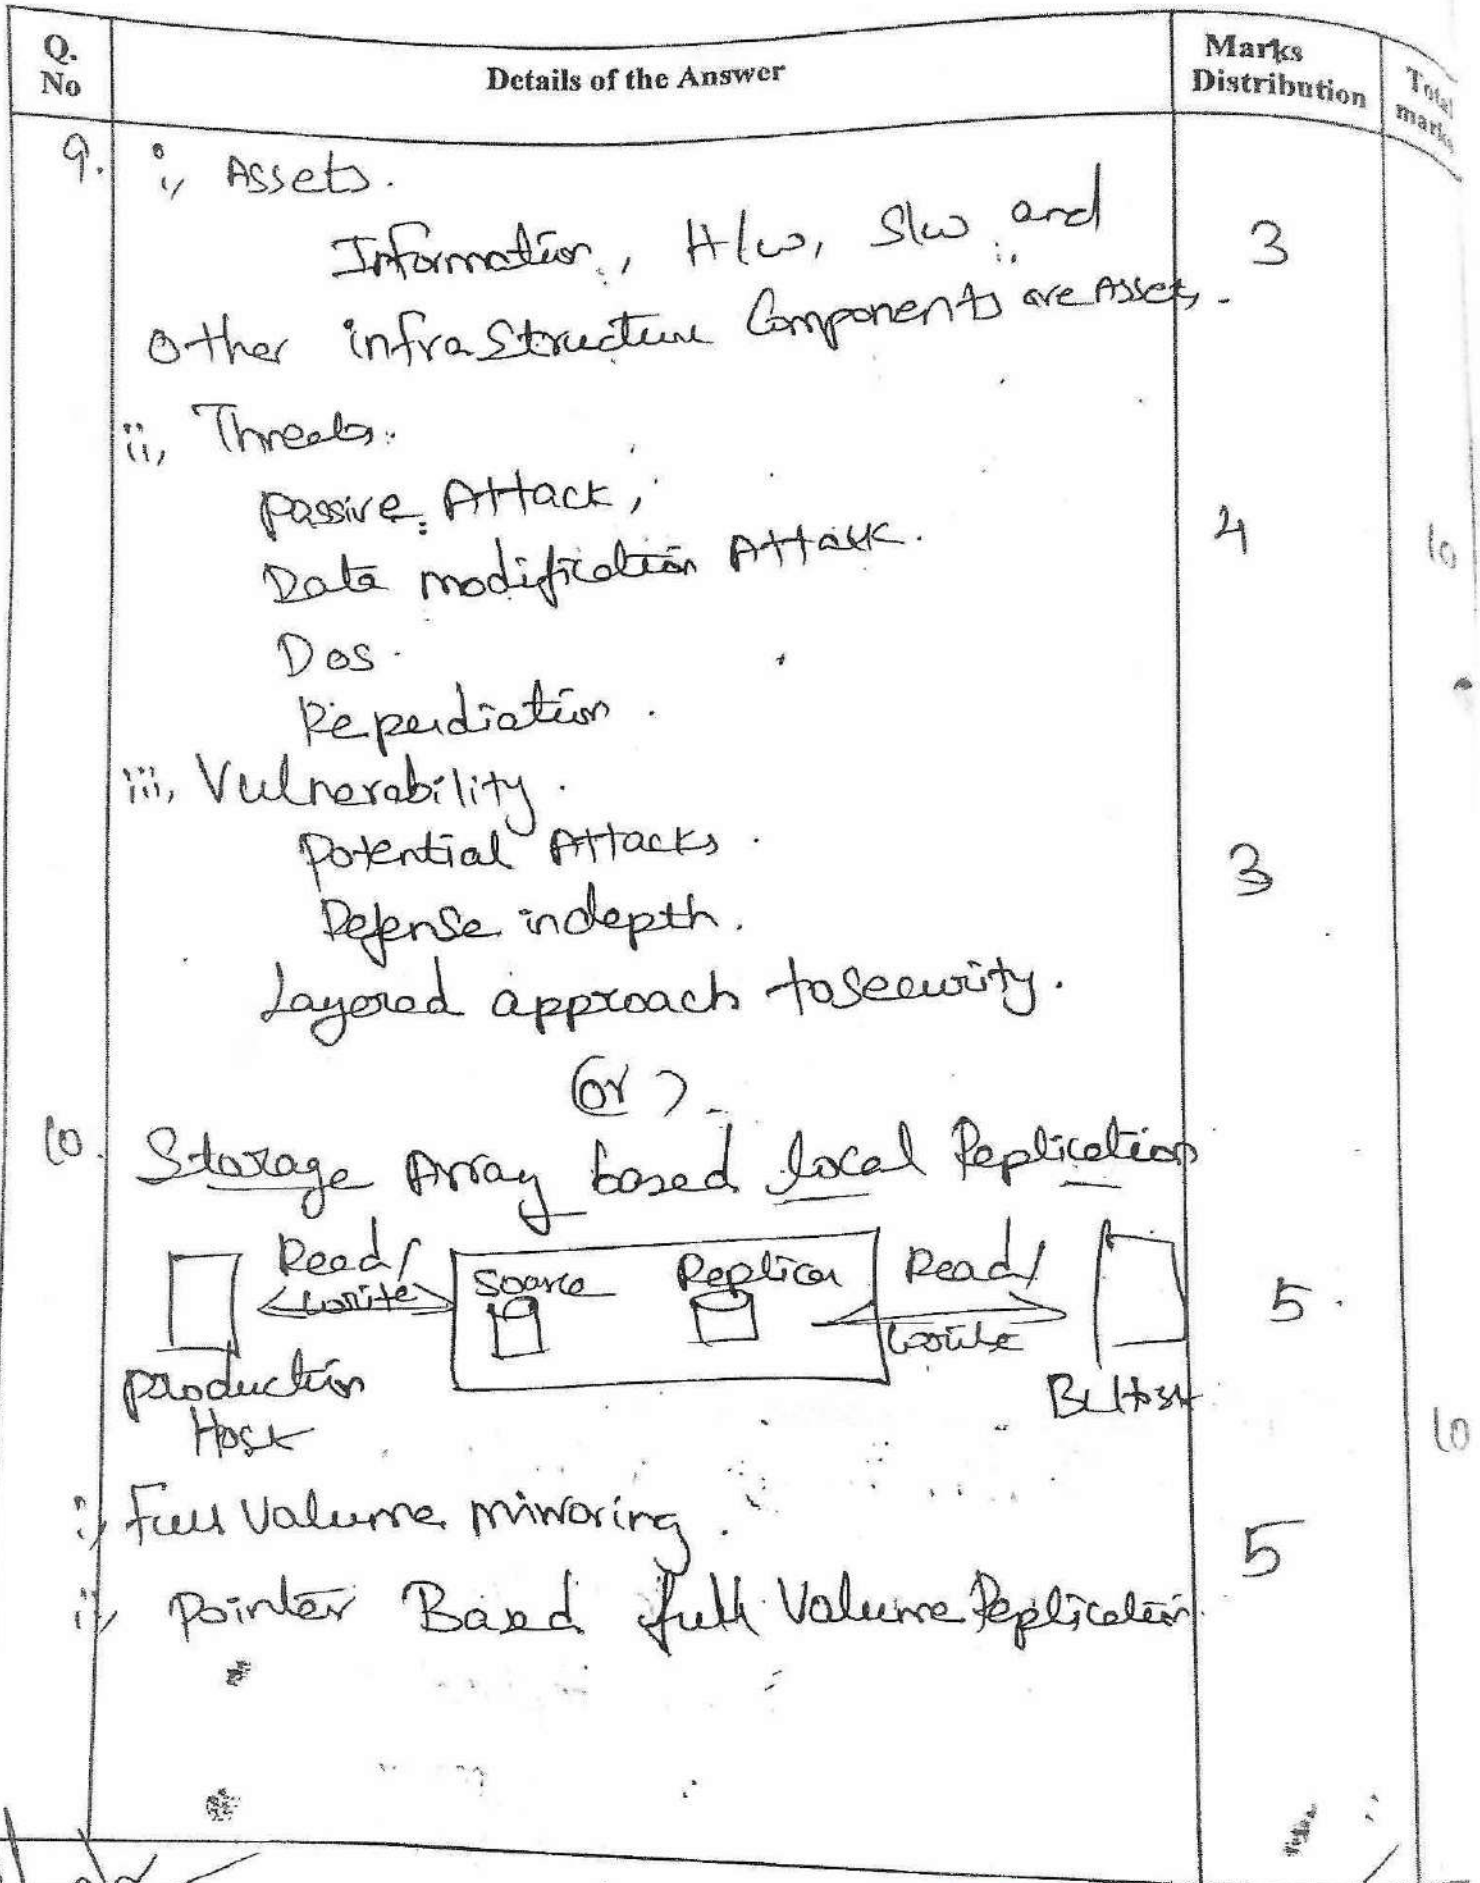 Q. No Details of the Answer Marks Distribution Total marks
9. i, Assets.
Information, H/w, S/w and 3
Other infrastructure Components are Assets.
ii, Threats.
Passive Attack,
4 10
Data modification Attack.
Dos.
Repudiation.
iii, Vulnerability.
Potential Attacks. 3
Defense indepth.
Layered approach to security.
(or)
10. Storage Array based local Replication
Read/ Source Replica Read/
write write 5.
Production Host
10
i, Full Volume mirroring. 5
ii, Pointer Based full Volume Replication.